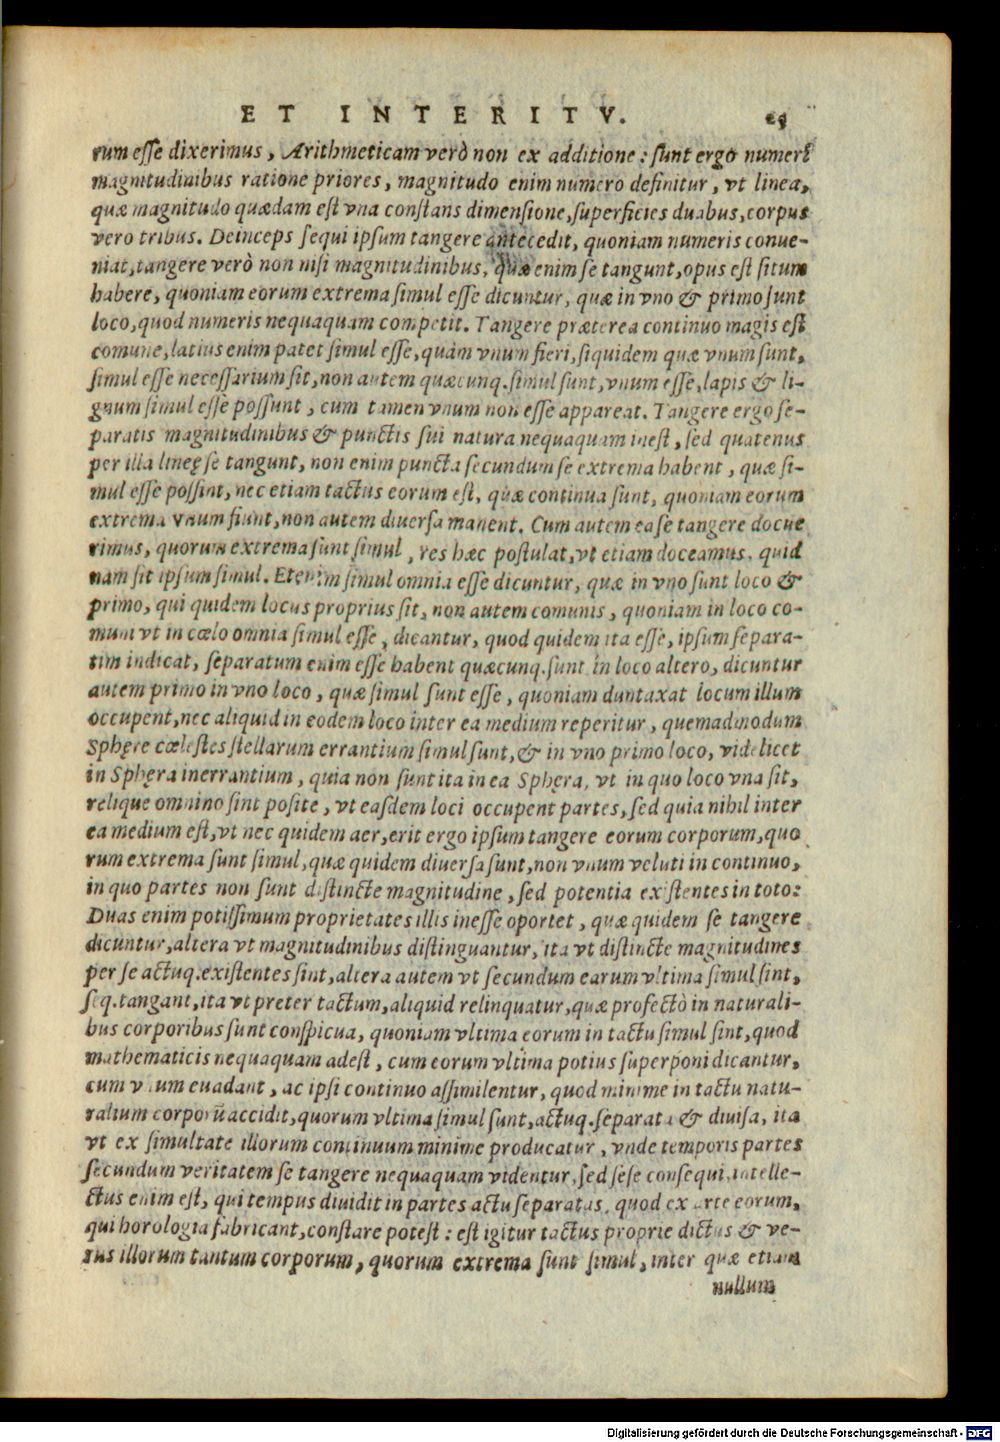 ET INTERITV.
rum esse dixerimus, Arithmeticam verò non ex additione: sunt ergo numeri
magnitudinibus ratione priores, magnitudo enim numero definitur, vt linea,
quæ magnitudo quædam est vna constans dimensione, superficies duabus, corpus
vero tribus. Deinceps sequi ipsum tangere antecedit, quoniam numeris conue-
niat, tangere verò non nisi magnitudinibus, quæ enim se tangunt, opus est situm
habere, quoniam eorum extrema simul esse dicuntur, quæ in vno & primo sunt
loco, quod numeris nequaquam competit. Tangere præterea continuo magis est
comune, latius enim patet simul esse, quàm vnum fieri, siquidem quæ vnum sunt,
simul esse necessarium sit, non autem quæcunq. simul sunt, vnum esse, lapis & li-
gnum simul esse possunt, cum tamen vnum non esse appareat. Tangere ergo se-
paratis magnitudinibus & punctis sui natura nequaquam inest, sed quatenus
per illa lineę se tangunt, non enim puncta secundum se extrema habent, quæ si-
mul esse possint, nec etiam tactus eorum est, quæ continua sunt, quoniam eorum
extrema vnum fiunt, non autem diuersa manent. Cum autem ea se tangere docue
rimus, quorum extrema sunt simul, res hæc postulat, vt etiam doceamus, quid
nam sit ipsum simul. Etenim simul omnia esse dicuntur, quæ in vno sunt loco &
primo, qui quidem locus proprius sit, non autem comunis, quoniam in loco co-
muni vt in cœlo omnia simul esse, dicantur, quod quidem ita esse, ipsum separa-
tim indicat, separatum enim esse habent quæcunq. sunt in loco altero, dicuntur
autem primo in vno loco, quæ simul sunt esse, quoniam duntaxat locum illum
occupent, nec aliquid in eodem loco inter ea medium reperitur, quemadmodum
Sphęre cœlestes stellarum errantium simul sunt, & in vno primo loco, videlicet
in Sphęra inerrantium, quia non sunt ita in ea Sphęra, vt in quo loco vna sit,
relique omnino sint posite, vt easdem loci occupent partes, sed quia nihil inter
ea medium est, vt nec quidem aer, erit ergo ipsum tangere eorum corporum, quo
rum extrema sunt simul, quæ quidem diuersa sunt, non vnum veluti in continuo,
in quo partes non sunt distincte magnitudine, sed potentia existentes in toto:
Duas enim potissimum proprietates illis inesse oportet, quæ quidem se tangere
dicuntur, altera vt magnitudinibus distinguantur, ita vt distincte magnitudines
per se actuq. existentes sint, altera autem vt secundum earum vltima simul sint,
seq. tangant, ita vt preter tactum, aliquid relinquatur, quæ profectò in naturali-
bus corporibus sunt conspicua, quoniam vltima eorum in tactu simul sint, quod
mathematicis nequaquam adest, cum eorum vltima potius superponi dicantur,
cum vnum euadant, ac ipsi continuo assimilentur, quod minime in tactu natu-
ralium corporũ accidit, quorum vltima simul sunt, actuq. separata & diuisa, ita
vt ex simultate illorum continuum minime producatur, vnde temporis partes
secundum veritatem se tangere nequaquam videntur, sed sese consequi, intelle-
ctus enim est, qui tempus diuidit in partes actu separatas, quod ex arte eorum,
qui horologia fabricant, constare potest: est igitur tactus proprie dictus & ve-
rus illorum tantum corporum, quorum extrema sunt simul, inter quæ etiam
nullum
Digitalisierung gefördert durch die Deutsche Forschungsgemeinschaft - DFG